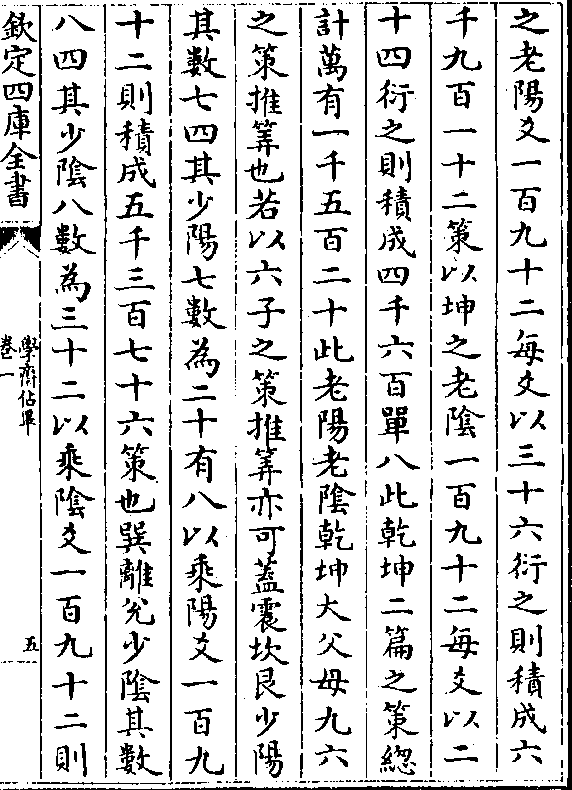 之老陽爻一百九十二每爻以三十六衍之則積成六
千九百一十二策以坤之老陰一百九十二每爻以二
十四衍之則積成四千六百單八此乾坤二篇之策緫
計萬有一千五百二十此老陽老陰乾坤大父母九六
之策推筭也若以六子之策推筭亦可葢震坎艮少陽
其數七四其少陽七數為二十有八以乘陽爻一百九
十二則積成五千三百七十六策也巽離兊少陰其數
八四其少陰八數為三十二以乘陰爻一百九十二則
欽定四庫全書
學齋佔畢
卷一
五